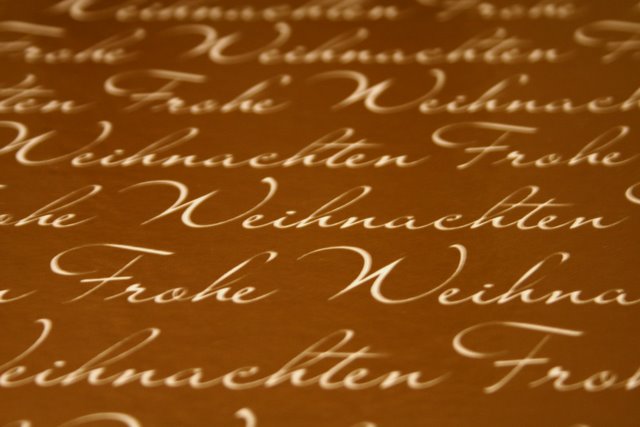 Weihnachten Frohe
Frohe Weihnachten
Frohe Weihnachten
Weihnachten Frohe
Weihnachten
Frohe Weihna
Weihnachten Froh